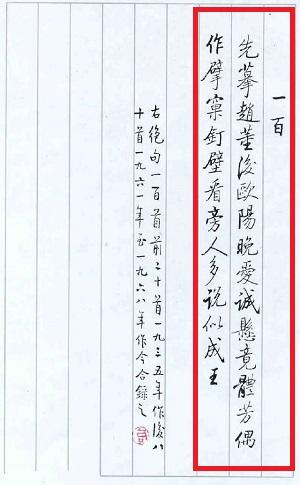 一百
先摹趙董後歐陽晚愛誠懸竟體芳偶
作擘窠釘壁看旁人多說似成王
右絕句一百首前二十首一九三五年作後八
十首一九六一年至一九六八年作今合錄之